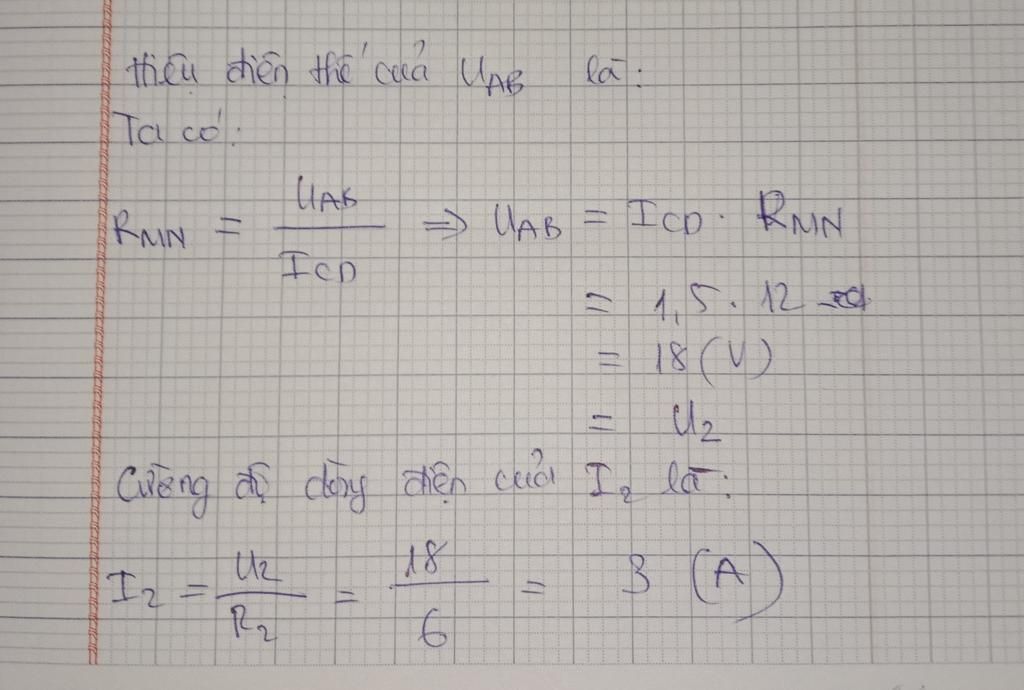 Hiệu điện thế của U_AB là:
Ta có:
R_MN = U_AB / I_CD => U_AB = I_CD . R_MN
= 1,5 . 12
= 18 (V)
= U_2
Cường độ dòng điện của I_2 là:
I_2 = U_2 / R_2 = 18 / 6 = 3 (A)